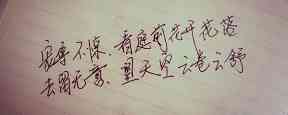 宠辱不惊，看庭前花开花落
去留无意，望天空云卷云舒